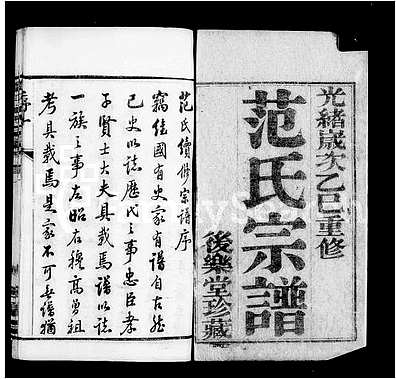 光緒歲次乙巳重修
范氏宗譜
後樂堂珍藏
范氏續修宗譜序
竊惟國有史家有譜自古然
已史以誌歷代之事忠臣孝
子賢士大夫具載焉譜以誌
一族之事左昭右穆高曾祖
考具載焉是家不可無譜猶